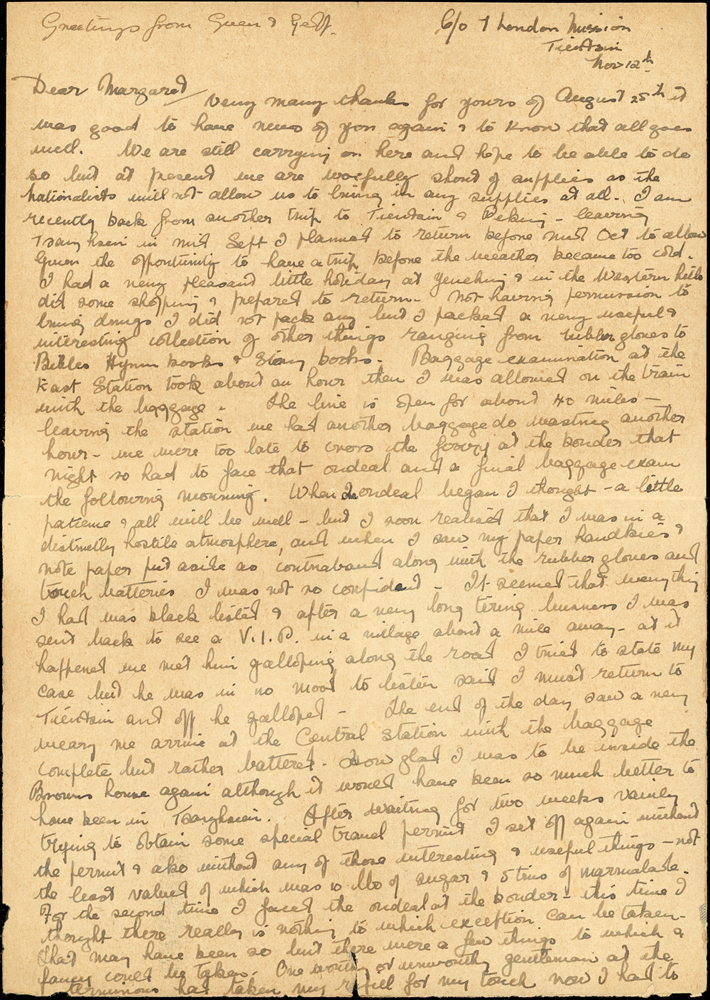 Greetings from Gwen & Geoff.
C/o London Mission
Tientsin
Nov 12th
Dear Margaret
Very many thanks for yours of August 25th it
was good to have news of you again & to know that all goes
well. We are still carrying on here and hope to be able to do
so but at present we are woefully short of supplies as the
Nationalists will not allow us to bring in any supplies at all. I am
recently back from another trip to Tientsin & Peking - leaving
Tsanghsien in mid Sept I planned to return before mid Oct to allow
Gwen the opportunity to have a trip before the weather became too cold.
I had a very pleasant little holiday at Yenching & in the Western hills
did some shopping & prepared to return. Not having permission to
bring drugs I did not pack any but I packed a very useful &
interesting collection of other things ranging from rubber gloves to
Bibles Hymn books & Story books. Baggage examination at the
East Station took about an hour then I was allowed on the train
with the baggage. The line is open for about 40 miles -
leaving the station we had another baggage do wasting another
hour - we were too late to cross the at the border that
night so had to face that ordeal and a final baggage exam
the following morning. When the ordeal began I thought - a little
patience & all will be well - but I soon realised that I was in a
distinctly hostile atmosphere, and when I saw my paper handkies &
note paper put aside as contraband along with the rubber gloves and
torch batteries I was not so confident - It seemed that everything
I had was black listed & after a very long tiring business I was
sent back to see a V.I.P. in a village about a mile away - as it
happened we met him galloping along the road I tried to state my
case but he was in no mood to listen said I must return to
Tientsin and off he galloped - The end of the day saw a very
weary me arrive at the Central Station with the baggage
complete but rather battered. How glad I was to be inside the
Browns house again although it would have been so much better to
have been in Tsanghsien. After waiting for two weeks vainly
trying to obtain some special travel permit I set off again without
the permit & also without any of those interesting & useful things - not
the least valued of which was 10 lbs of sugar & 5 tins of marmalade.
For the second time I faced the ordeal at the border - this time I
thought there really is nothing to which exception can be taken -
that may have been so but there were a few things to which a
fancy could be taken. One worthy or unworthy gentleman at the
terminus had taken my refill for my torch now I had to